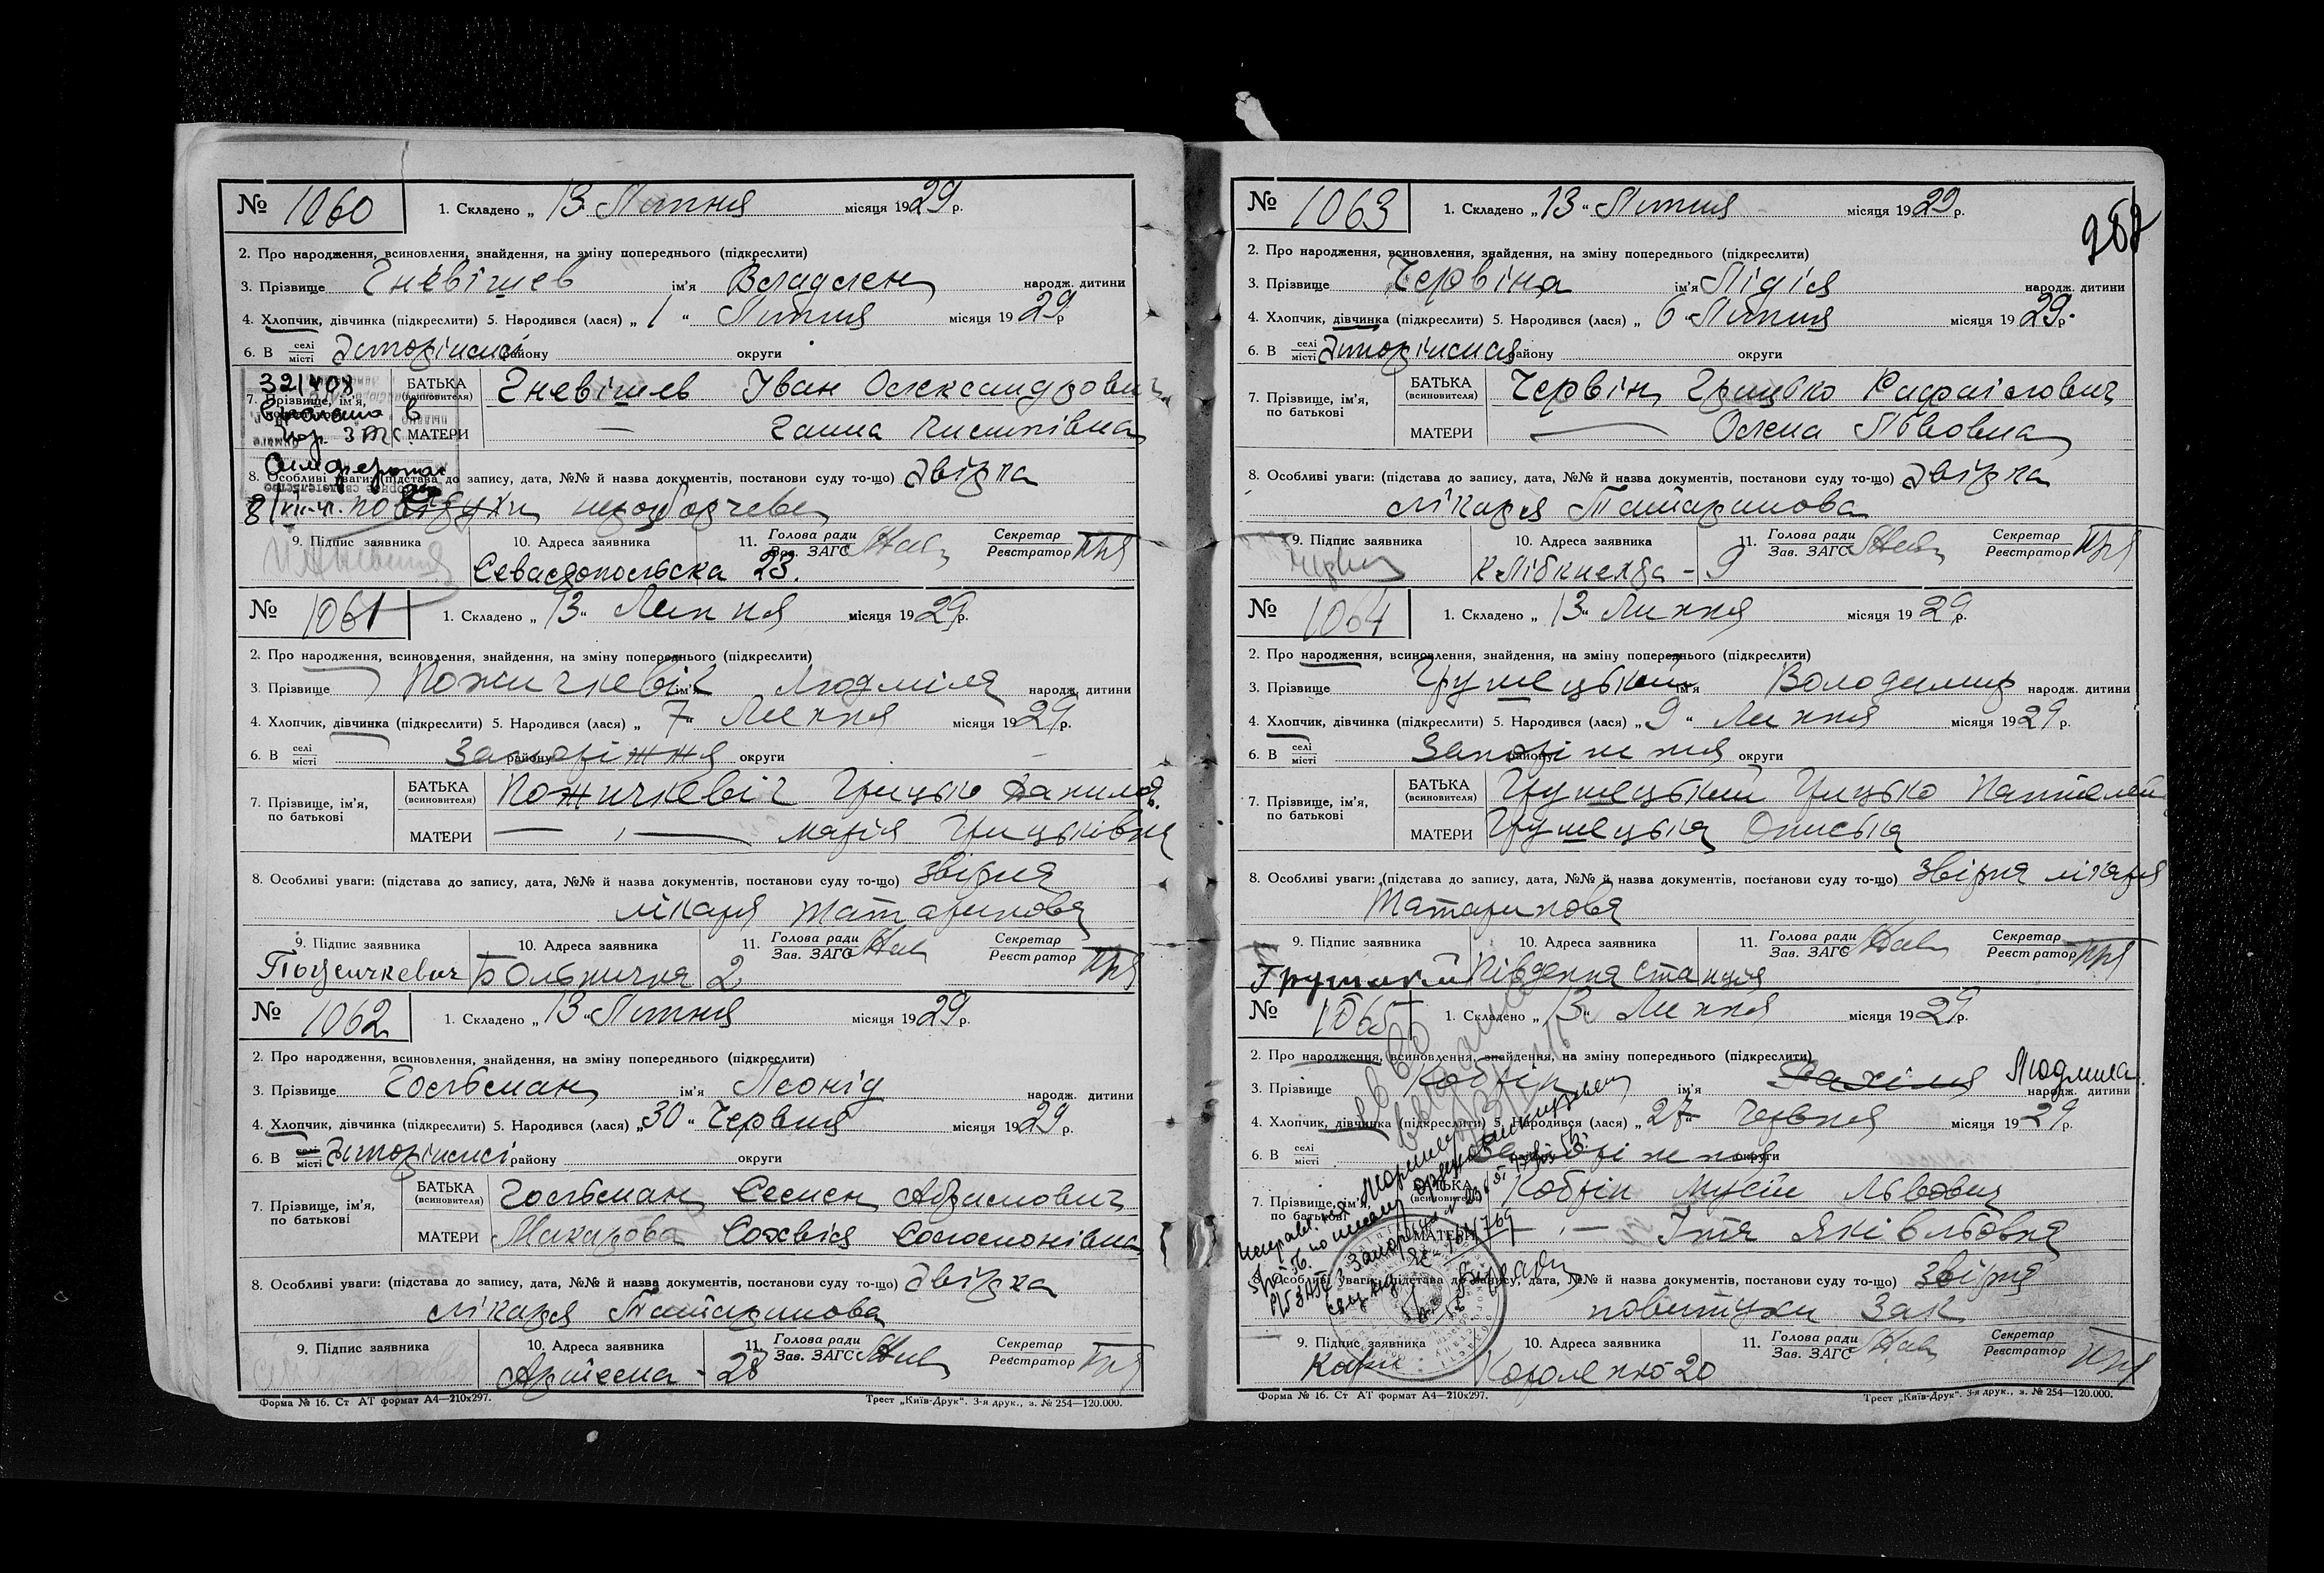 № 1060 1. Складено „ 13 " Липня місяця 1929 р.
2. Про народження, всиновлення, знайдення, на зміну попереднього (підкреслити)
3. Прізвище Гневішев ім'я Владлен народж. дитини
4. Хлопчик, дівчинка (підкреслити) 5. Народився (лася) „ 1 " Липня місяця 1929 р.
6. В селі місті Запоріжжі району округи
7. Прізвище, ім'я, по батькові
БАТЬКА (всиновителя) Гневішев Іван Олександрович
МАТЕРИ — Ганна
8. Особливі уваги: (підстава до запису, дата, №№ й назва документів, постанови суду то-що) Звірка
9. Підпис заявника 10. Адреса заявника 11. Голова ради Зав. ЗАГС Секретар Реєстратор
Севастопольска 23.
№ 1061 1. Складено „ 13 " Липня місяця 1929 р.
2. Про народження, всиновлення, знайдення, на зміну попереднього (підкреслити)
3. Прізвище Пожичкевіч ім'я Людміла народж. дитини
4. Хлопчик, дівчинка (підкреслити) 5. Народився (лася) „ 7 " Липня місяця 1929 р.
6. В селі місті Запоріжжя району округи
7. Прізвище, ім'я, по батькові
БАТЬКА (всиновителя) Пожичкевіч Грицько Данилов.
МАТЕРИ — „ — Марія Грицьківна
8. Особливі уваги: (підстава до запису, дата, №№ й назва документів, постанови суду то-що) Звірка
лікаря Татаринова
9. Підпис заявника 10. Адреса заявника 11. Голова ради Зав. ЗАГС Секретар Реєстратор
Больнична 2
№ 1062 1. Складено „ 13 " Липня місяця 1929 р.
2. Про народження, всиновлення, знайдення, на зміну попереднього (підкреслити)
3. Прізвище Гольбман ім'я Леонід народж. дитини
4. Хлопчик, дівчинка (підкреслити) 5. Народився (лася) „ 30 " Червня місяця 1929 р.
6. В селі місті Запоріжжі району округи
7. Прізвище, ім'я, по батькові
БАТЬКА (всиновителя) Гольбман Семен Абрамович
МАТЕРИ Макарова Софвія Соломонівна
8. Особливі уваги: (підстава до запису, дата, №№ й назва документів, постанови суду то-що) Звірка
лікаря Татаринова
9. Підпис заявника 10. Адреса заявника 11. Голова ради Зав. ЗАГС Секретар Реєстратор
Артема - 28
Форма № 16. Ст АТ формат А4—210х297. Трест „Київ-Друк". 3-я друк., з. № 254—120.000.
252
№ 1063 1. Складено „ 13 " Липня місяця 1929 р.
2. Про народження, всиновлення, знайдення, на зміну попереднього (підкреслити)
3. Прізвище Червіна ім'я Лідія народж. дитини
4. Хлопчик, дівчинка (підкреслити) 5. Народився (лася) „ 6 " Липня місяця 1929 р.
6. В селі місті Запоріжжя району округи
7. Прізвище, ім'я, по батькові
БАТЬКА (всиновителя) Червін Грицько Рафаілович
МАТЕРИ — Олена Львовна
8. Особливі уваги: (підстава до запису, дата, №№ й назва документів, постанови суду то-що) Звірка
лікаря Татаринова
9. Підпис заявника 10. Адреса заявника 11. Голова ради Зав. ЗАГС Секретар Реєстратор
К Лібкнехта - 9
№ 1064 1. Складено „ 13 " Липня місяця 1929 р.
2. Про народження, всиновлення, знайдення, на зміну попереднього (підкреслити)
3. Прізвище Грушецький ім'я Володимир народж. дитини
4. Хлопчик, дівчинка (підкреслити) 5. Народився (лася) „ 9 " Липня місяця 1929 р.
6. В селі місті Запоріжжя району округи
7. Прізвище, ім'я, по батькові
БАТЬКА (всиновителя) Грушецький Грицько Пантелей
МАТЕРИ Грушецька Описька
8. Особливі уваги: (підстава до запису, дата, №№ й назва документів, постанови суду то-що) Звірка лікаря
Татаринова
9. Підпис заявника 10. Адреса заявника 11. Голова ради Зав. ЗАГС Секретар Реєстратор
Південна станція
№ 1065 1. Складено „ 13 " Липня місяця 1929 р.
2. Про народження, всиновлення, знайдення, на зміну попереднього (підкреслити)
3. Прізвище Кобрін ім'я Рахіля Людмила народж. дитини
4. Хлопчик, дівчинка (підкреслити) 5. Народився (лася) „ 27 " Червня місяця 1929 р.
6. В селі місті Запоріжжя округи
7. Прізвище, ім'я, по батькові
БАТЬКА (всиновителя) Кобрін Мусій Львович
МАТЕРИ — „ — Іта Яківльовна
8. Особливі уваги: (підстава до запису, дата, №№ й назва документів, постанови суду то-що) Звірка
повитухи Зак
9. Підпис заявника 10. Адреса заявника 11. Голова ради Зав. ЗАГС Секретар Реєстратор
Короленко 20
Форма № 16. Ст АТ формат А4—210х297. Трест „Київ-Друк". 3-я друк., з. № 254—120.000.